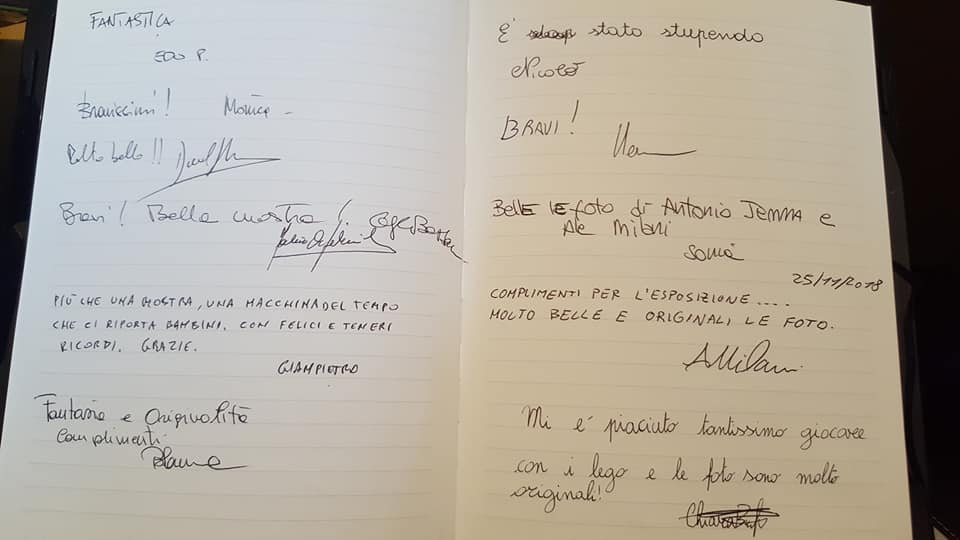 FANTASTICA
EDO P.
Bravissimi! Monica -
Molto bello!!
Bravi! Bella mostra!
PIÙ CHE UNA MOSTRA, UNA MACCHINA DEL TEMPO
CHE CI RIPORTA BAMBINI, CON FELICI E TENERI
RICORDI. GRAZIE.
GIAMPIETRO
Fantasia e Originalità
Complimenti
È stato stupendo
Nicolò
BRAVI!
BELLE LE FOTO di ANTONIO JEMMA e
Ale Milani
Sonia
25/11/2018
COMPLIMENTI PER L'ESPOSIZIONE....
MOLTO BELLE E ORIGINALI, LE FOTO.
AMilani
Mi è piaciuto tantissimo giocare
con i lego e le foto sono molto
originali!